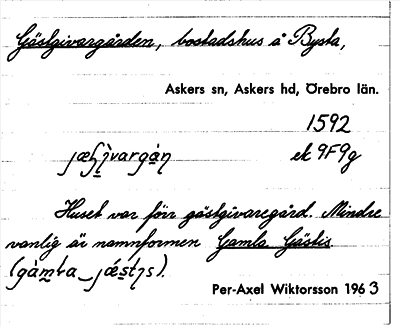 Gästgivargården, bostadshus å Bysta,
Askers sn, Askers hd, Örebro län.
1592
ek 9F9g
Huset var förr gästgivaregård. Mindre
vanlig är namnformen Gamla Gästis
Per-Axel Wiktorsson 1963